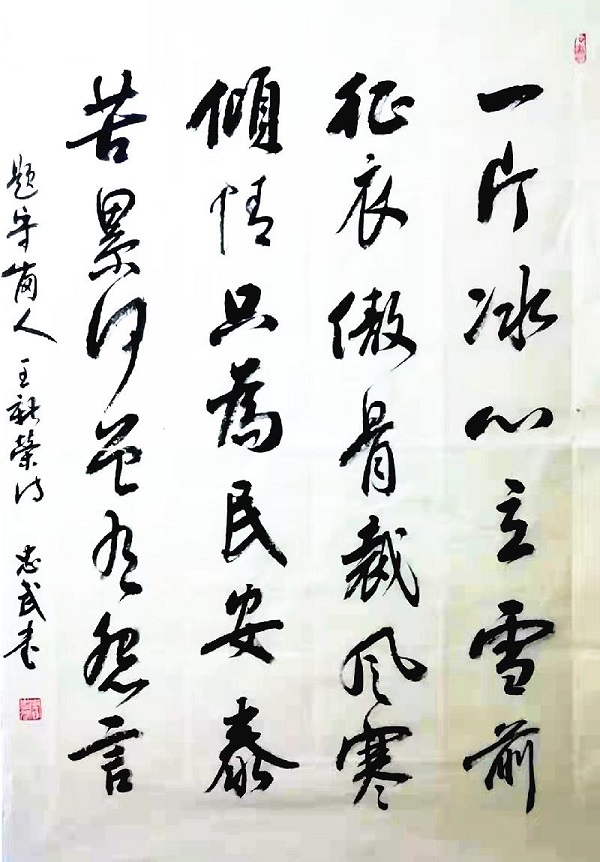 一片冰心立雪前
征衣傲骨裁风寒
倾情只為民安泰
苦累何曾有怨言
题守岗人 王新荣诗 忠武书